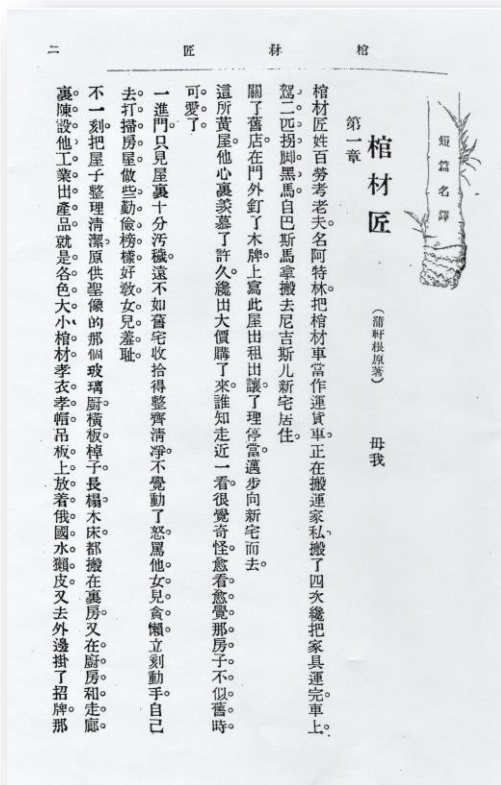 棺材匠
二
短篇名譯
棺材匠
（蒲軒根原著）
毋我
第一章
棺材匠姓百勞考老夫。名阿特林。把棺材車當作運貨車。正在搬運家私、搬了四次、纔把家具運完。車上、
駕二匹拐脚黑馬。自巴斯馬拿搬去尼吉斯儿新宅居住。
關了舊店。在門外釘了木牌。上寫此屋出租出讓。了理停當。邁步向新宅而去。
這所黃屋。他心裏羨慕了許久。纔出大價購了來。誰知走近一看。很覺奇怪。愈看愈覺那房子不似舊時。
可愛了。
一進門。只見屋裏十分汚穢。遠不如舊宅收拾得整齊清凈。不覺動了怒。罵他女兒貪懶。立刻動手。自己
去打掃房屋。做些勤儉榜樣。好敎女兒羞耻
不一刻。把屋子整理清潔。原供聖像的那個玻璃厨。橫板棹子。長榻木床。都搬在裏房。又在廚房和走廊。
裏。陳設他工業出產品。就是各色大小棺材。孝衣孝帽。吊板上放着俄國水獺皮。又去外邊掛了招牌。那